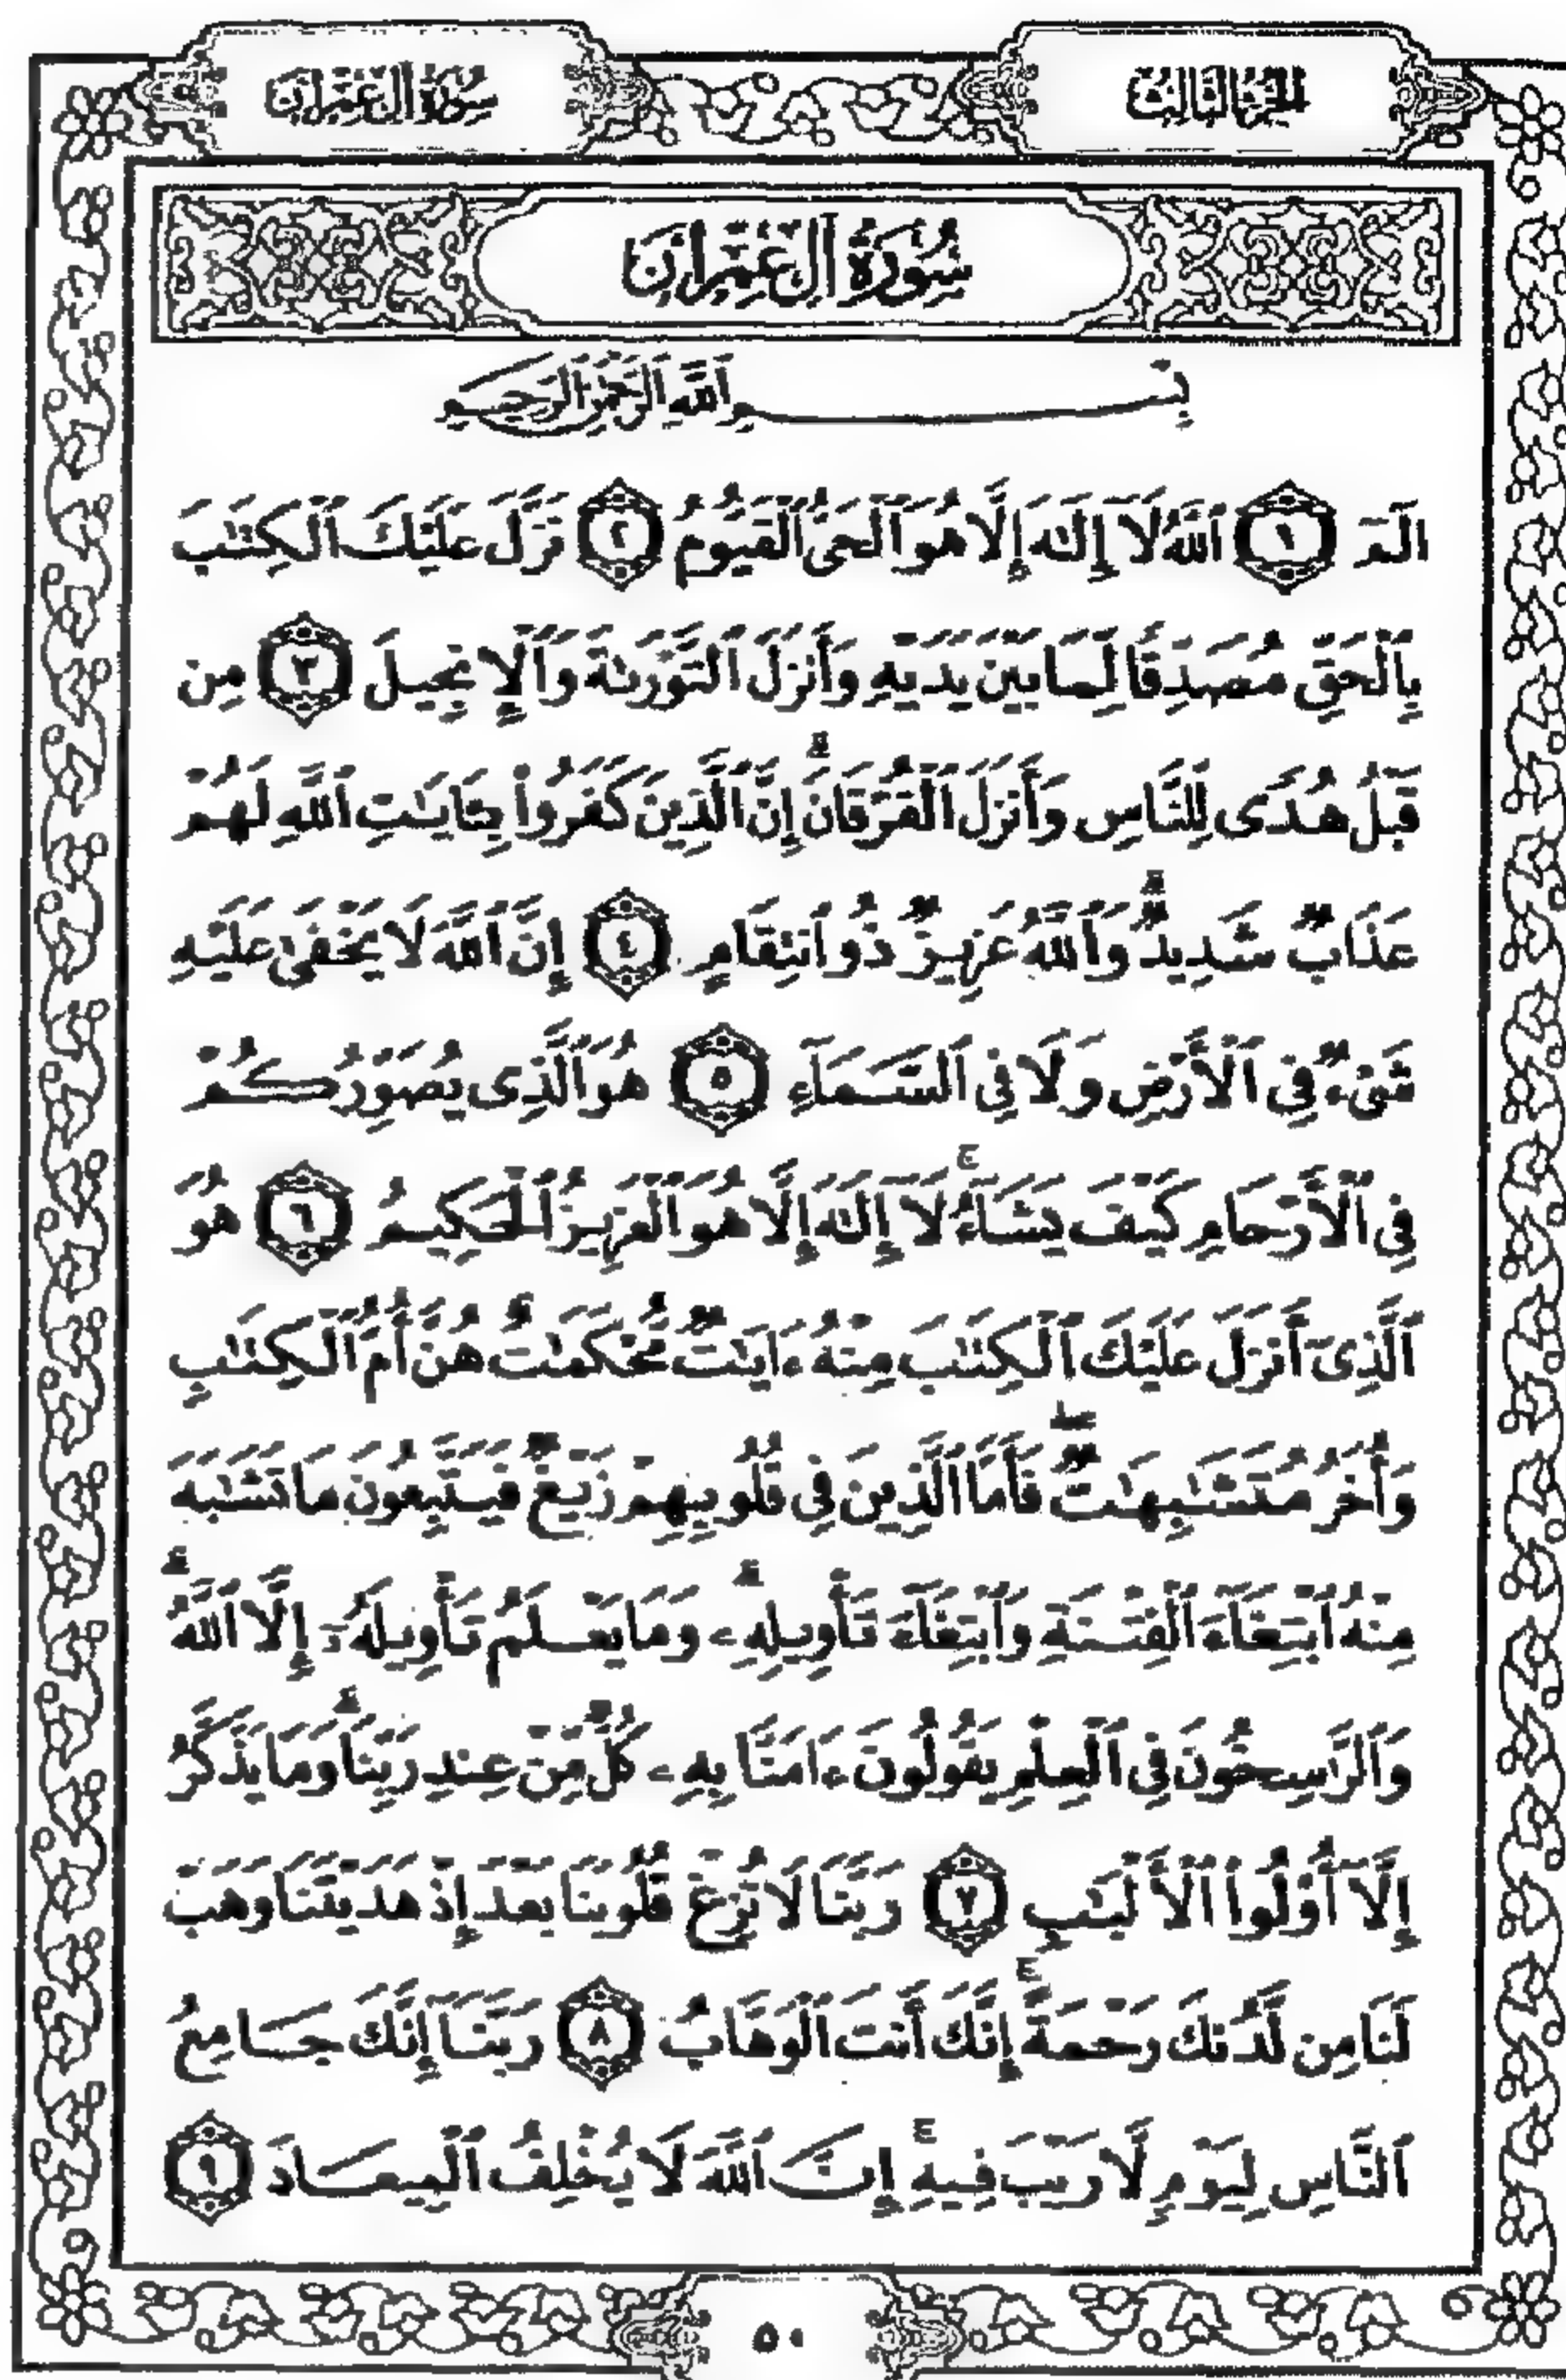 الجزء الثالث
سورة آل عمران
سُورَةُ آلِ عِمْرَانَ
بِسْمِ ٱللَّهِ ٱلرَّحْمَٰنِ ٱلرَّحِيمِ
الٓمٓ ١ ٱللَّهُ لَآ إِلَٰهَ إِلَّا هُوَ ٱلْحَىُّ ٱلْقَيُّومُ ٢ نَزَّلَ عَلَيْكَ ٱلْكِتَٰبَ
بِٱلْحَقِّ مُصَدِّقًا لِّمَا بَيْنَ يَدَيْهِ وَأَنزَلَ ٱلتَّوْرَىٰةَ وَٱلْإِنجِيلَ ٣ مِن
قَبْلُ هُدًى لِّلنَّاسِ وَأَنزَلَ ٱلْفُرْقَانَ ۗ إِنَّ ٱلَّذِينَ كَفَرُوا۟ بِـَٔايَٰتِ ٱللَّهِ لَهُمْ
عَذَابٌ شَدِيدٌ ۗ وَٱللَّهُ عَزِيزٌ ذُو ٱنتِقَامٍ ٤ إِنَّ ٱللَّهَ لَا يَخْفَىٰ عَلَيْهِ
شَىْءٌ فِى ٱلْأَرْضِ وَلَا فِى ٱلسَّمَآءِ ٥ هُوَ ٱلَّذِى يُصَوِّرُكُمْ
فِى ٱلْأَرْحَامِ كَيْفَ يَشَآءُ ۚ لَآ إِلَٰهَ إِلَّا هُوَ ٱلْعَزِيزُ ٱلْحَكِيمُ ٦ هُوَ
ٱلَّذِىٓ أَنزَلَ عَلَيْكَ ٱلْكِتَٰبَ مِنْهُ ءَايَٰتٌ مُّحْكَمَٰتٌ هُنَّ أُمُّ ٱلْكِتَٰبِ
وَأُخَرُ مُتَشَٰبِهَٰتٌ ۖ فَأَمَّا ٱلَّذِينَ فِى قُلُوبِهِمْ زَيْغٌ فَيَتَّبِعُونَ مَا تَشَٰبَهَ
مِنْهُ ٱبْتِغَآءَ ٱلْفِتْنَةِ وَٱبْتِغَآءَ تَأْوِيلِهِۦ ۗ وَمَا يَعْلَمُ تَأْوِيلَهُۥٓ إِلَّا ٱللَّهُ ۗ
وَٱلرَّٰسِخُونَ فِى ٱلْعِلْمِ يَقُولُونَ ءَامَنَّا بِهِۦ كُلٌّ مِّنْ عِندِ رَبِّنَا ۗ وَمَا يَذَّكَّرُ
إِلَّآ أُو۟لُوا۟ ٱلْأَلْبَٰبِ ٧ رَبَّنَا لَا تُزِغْ قُلُوبَنَا بَعْدَ إِذْ هَدَيْتَنَا وَهَبْ
لَنَا مِن لَّدُنكَ رَحْمَةً ۚ إِنَّكَ أَنتَ ٱلْوَهَّابُ ٨ رَبَّنَآ إِنَّكَ جَامِعُ
ٱلنَّاسِ لِيَوْمٍ لَّا رَيْبَ فِيهِ ۚ إِنَّ ٱللَّهَ لَا يُخْلِفُ ٱلْمِيعَادَ ٩
٥٠